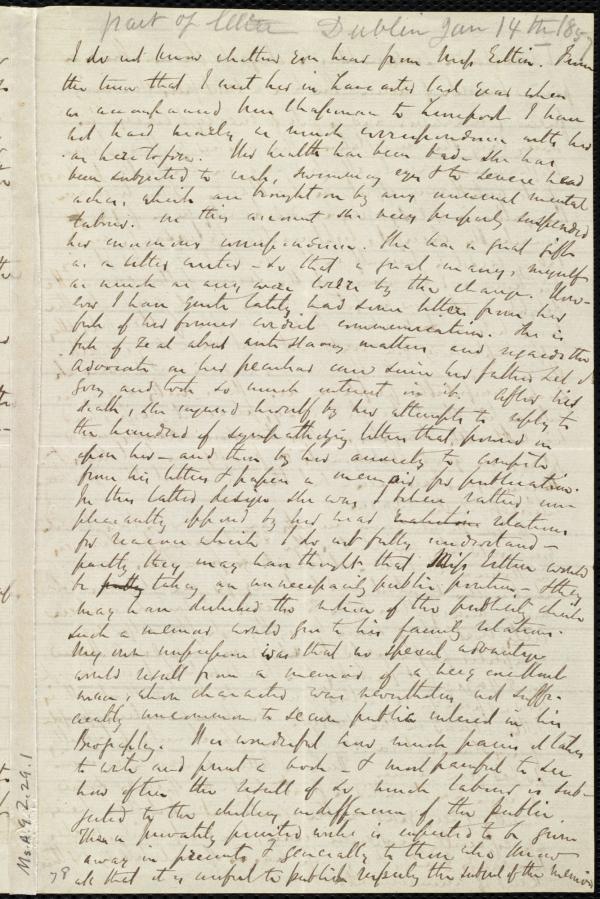 part of letter Dublin Jan 14th 185
I do not know whether you hear from Miss Estlin. From
the time that I met her in Lancaster last year when
we accompanied Mrs Chapman to Liverpool I have
not had nearly as much correspondence with her
as heretofore. Her health has been bad – she has
been subjected to weak, swimming eyes & to severe head
aches, which are brought on by any unusual mental
labour. On this account she very properly suspended
her numerous correspondence. She has a great gift
as a letter writer – so that a great many, myself
as much as any, were losers by the change. How-
ever I have quite lately had some letters from her
full of her former cordial communication. She is
full of zeal about anti slavery matters and regards the
Advocate as her peculiar care since her father set it
going and took so much interest in it. After his
death, she injured herself by her attempts to reply to
the hundreds of sympathizing letters that poured in
upon her – and then by her anxiety to compile
from his letters & papers a memoir for publication.
In this latter design she was I believe rather un-
pleasantly opposed by her near relations
for reasons which I do not fully understand –
partly they may have thought that Miss Estlin would
be taking an unnecessarily public position – & they
may have disliked the notion of the publicity which
such a memoir would give to his family relations.
My own impression was that no special advantage
would result from a memoir of a very excellent
man, whose character was nevertheless not suffi-
ciently uncommon to secure public interest in his
Biography. It is wonderful how much pains it takes
to write and print a book – & most painful to see
how often the result of so much labour is sub-
jected to the chilling indifference of the public.
Then a privately printed work is expected to be given
away in presents & generally to those who know
all that it is useful to publish respecting the subject of the memoir
78
Ms.A.9.2.29.1